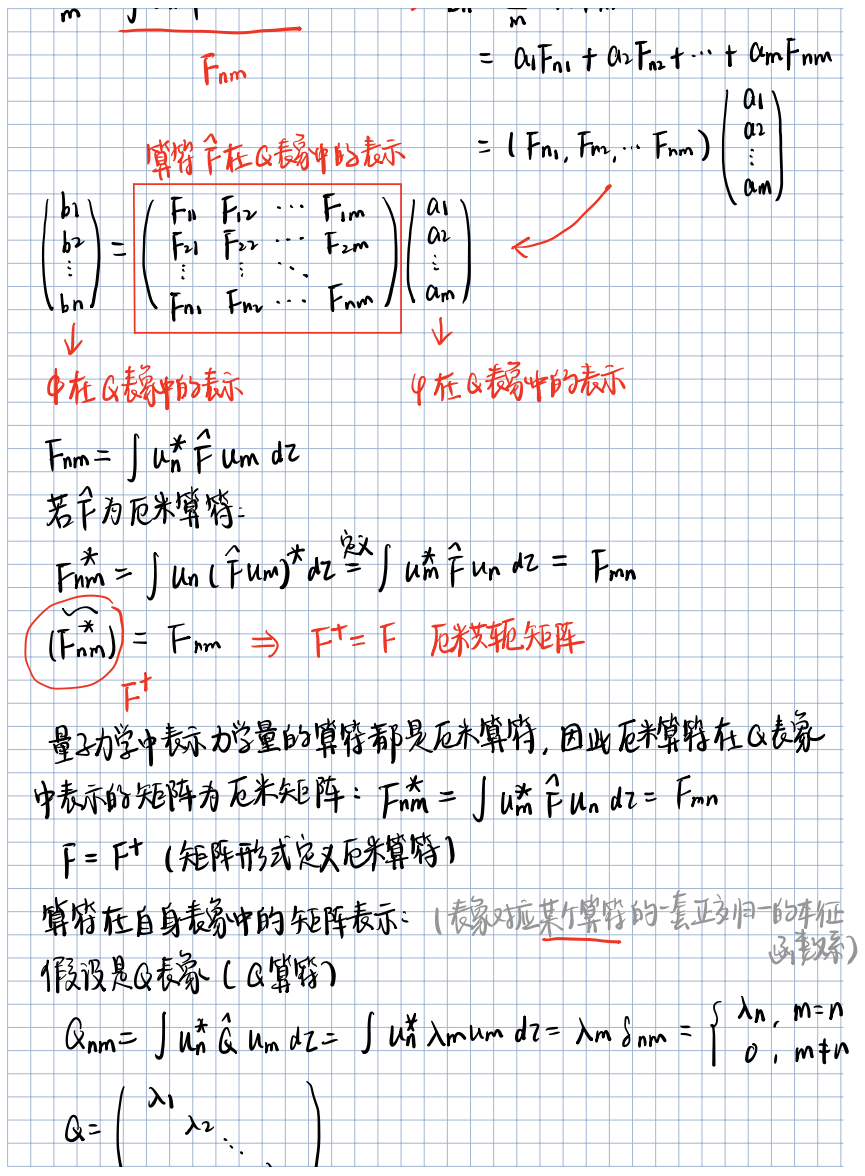 m
F_{nm}
= a_1F_{n1} + a_2F_{n2} + ⋯ + a_mF_{nm}
= (F_{n1}, F_{n2}, ⋯ F_{nm}) \begin{pmatrix} a_1 \\ a_2 \\ ⋮ \\ a_m \end{pmatrix}
算符 \hat{F} 在Q表象中的表示
\begin{pmatrix} b_1 \\ b_2 \\ ⋮ \\ b_n \end{pmatrix} = \begin{pmatrix} F_{11} & F_{12} & ⋯ & F_{1m} \\ F_{21} & F_{22} & ⋯ & F_{2m} \\ ⋮ & ⋮ & ⋱ & \\ F_{n1} & F_{n2} & ⋯ & F_{nm} \end{pmatrix} \begin{pmatrix} a_1 \\ a_2 \\ ⋮ \\ a_m \end{pmatrix}
↓ ↓
φ在Q表象中的表示 ψ在Q表象中的表示
F_{nm} = ∫ u_n^* \hat{F} u_m dτ
若 \hat{F} 为厄米算符:
F_{nm}^* = ∫ u_n (\hat{F} u_m)^* dτ \overset{定义}{=} ∫ u_m^* \hat{F} u_n dτ = F_{mn}
(\widetilde{F_{nm}^*}) = F_{nm} ⇒ F^† = F 厄米共轭矩阵
F^†
量子力学中表示力学量的算符都是厄米算符, 因此厄米算符在Q表象
中表示的矩阵为厄米矩阵: F_{nm}^* = ∫ u_m^* \hat{F} u_n dτ = F_{mn}
F = F^† (矩阵形式定义厄米算符)
算符在自身表象中的矩阵表示: (表象对应某个算符的一套正交归一的本征
函数系)
假设是Q表象 (Q算符)
Q_{nm} = ∫ u_n^* \hat{Q} u_m dτ = ∫ u_n^* λ_m u_m dτ = λ_m δ_{nm} = \begin{cases} λ_n, m=n \\ 0, m≠n \end{cases}
Q = ( λ_1
λ_2
⋱